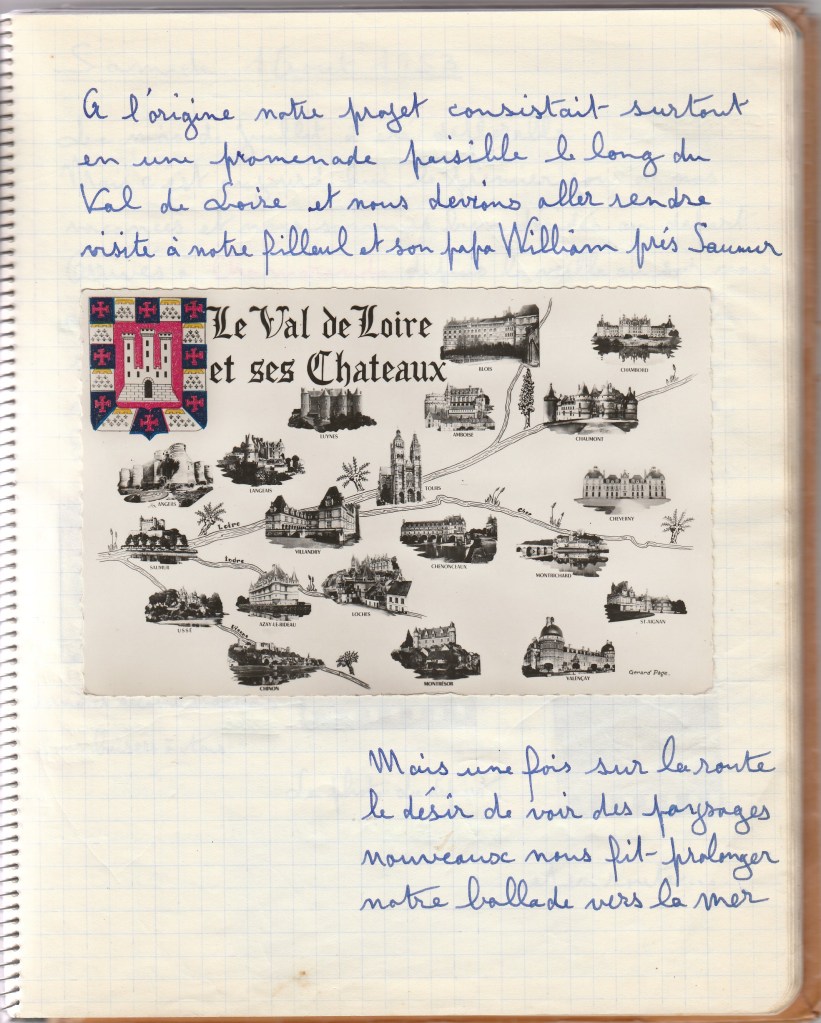 A l'origine notre projet consistait surtout
en une promenade paisible le long du
Val de Loire et nous devions aller rendre
visite à notre filleul et son papa William prés Saumur
Le Val de Loire
et ses Chateaux
BLOIS
CHAMBORD
LUYNES
AMBOISE
CHAUMONT
ANGERS
LANGEAIS
TOURS
CHEVERNY
Loire
Cher
SAUMUR
VILLANDRY
CHENONCEAUX
MONTRICHARD
Indre
USSÉ
AZAY-LE-RIDEAU
LOCHES
ST-AIGNAN
Vienne
CHINON
MONTRÉSOR
VALENÇAY
Gérard Page.
Mais une fois sur la route
le désir de voir des paysages
nouveaux nous fit prolonger
notre ballade vers la mer